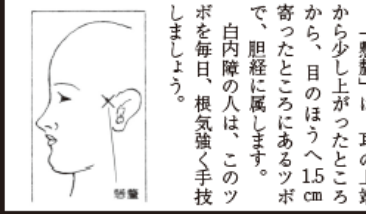 「懸釐」は、耳の上端
から少し上がったところ
から、目のほうへ1.5cm
寄ったところにあるツボ
で、胆経に属します。
　白内障の人は、このツ
ボを毎日、根気強く手技
しましょう。
懸釐